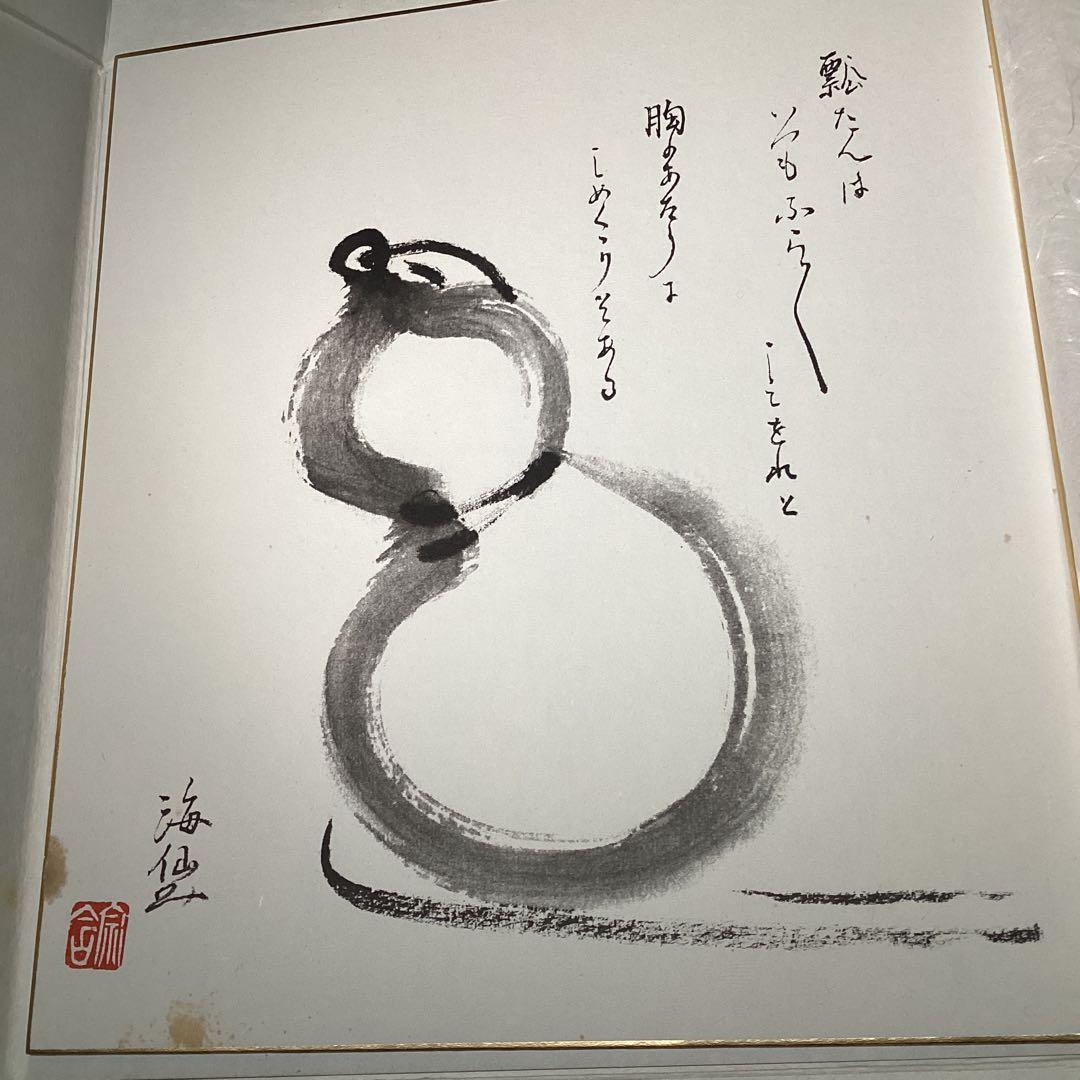 瓢たんは
いつもふら〱
してをれと
胸のあたりに
しめくくりそある
海仙